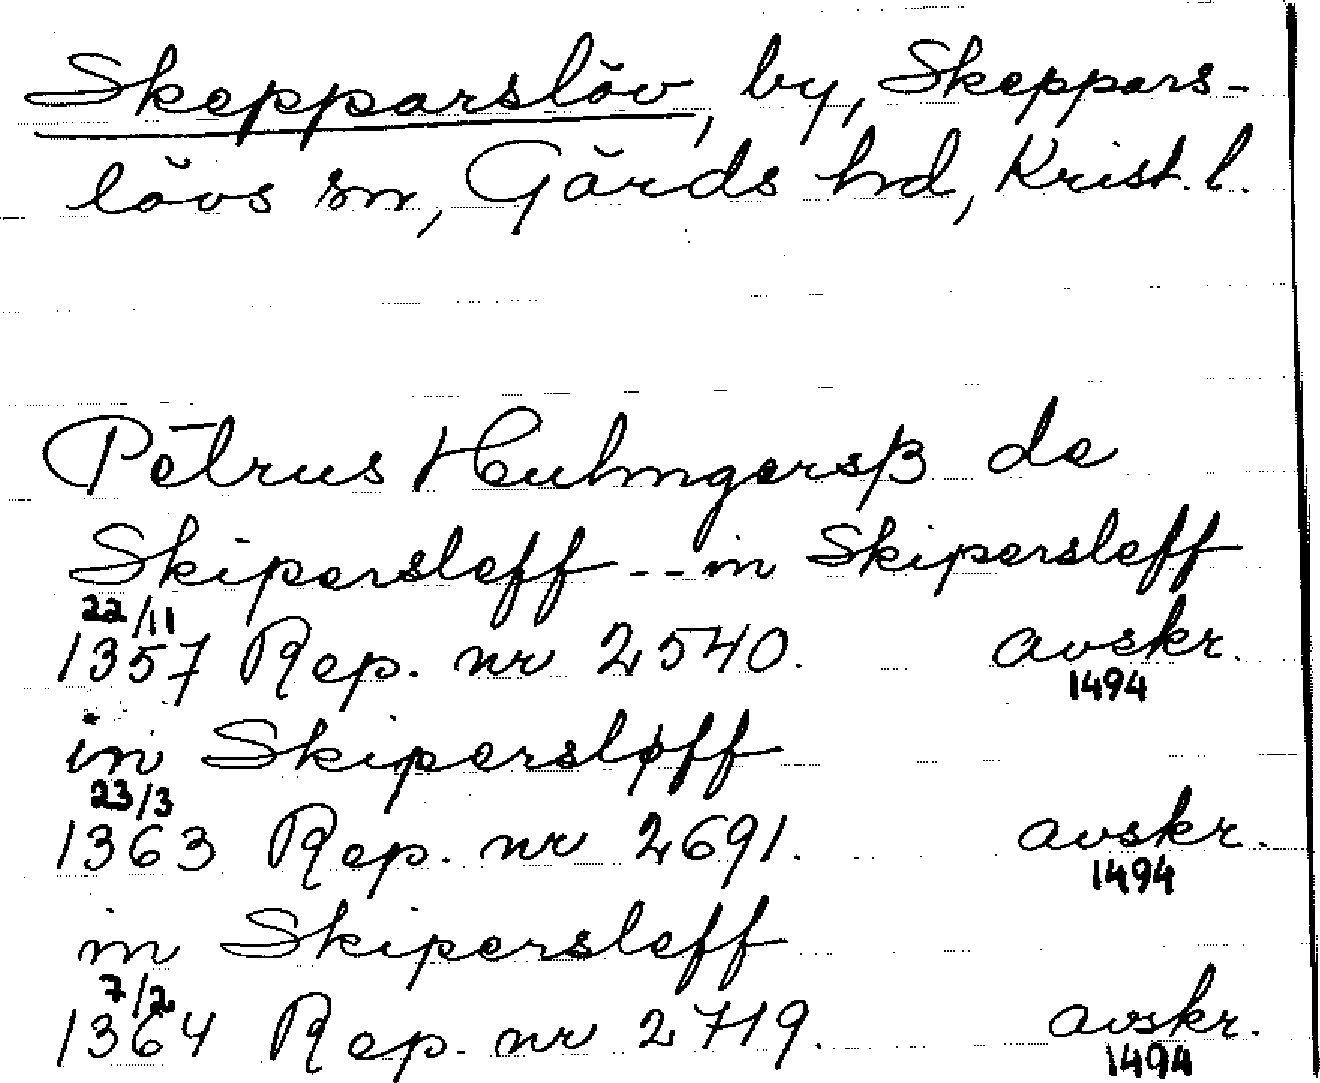 Skepparslöv, by, Skeppars-
lövs sn, Gärds hd, Krist. l.
Petrus Hulmgersβ de
Skipersleff -- in Skipersleff
22/11
1357 Rep. nr 2540. avskr.
1494
in Skipersløff
23/3
1363 Rep. nr 2691. avskr.
1494
in Skipersleff
7/2
1364 Rep. nr 2719. avskr.
1494